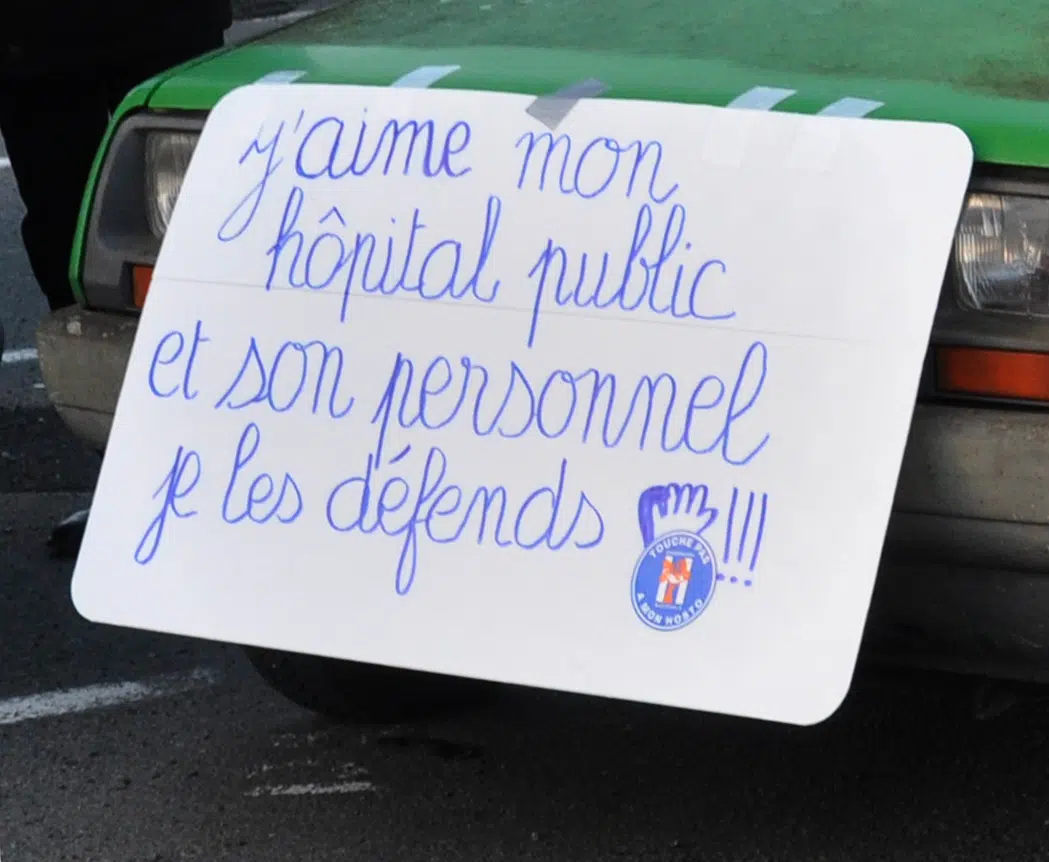 j'aime mon
hôpital public
et son personnel
je les défends !!!
TOUCHE PAS
A MON HOSTO